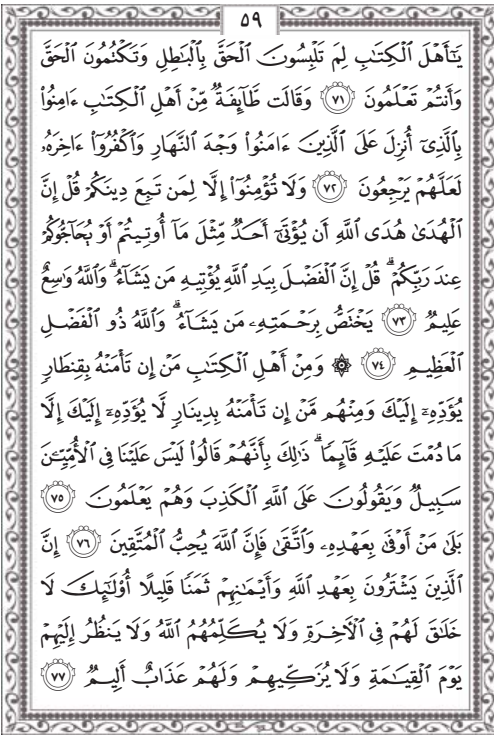 ٥٩
يَـٰٓأَهْلَ ٱلْكِتَـٰبِ لِمَ تَلْبِسُونَ ٱلْحَقَّ بِٱلْبَـٰطِلِ وَتَكْتُمُونَ ٱلْحَقَّ
وَأَنتُمْ تَعْلَمُونَ ٧١ وَقَالَت طَّآئِفَةٌ مِّنْ أَهْلِ ٱلْكِتَـٰبِ ءَامِنُوا۟
بِٱلَّذِىٓ أُنزِلَ عَلَى ٱلَّذِينَ ءَامَنُوا۟ وَجْهَ ٱلنَّهَارِ وَٱكْفُرُوٓا۟ ءَاخِرَهُۥ
لَعَلَّهُمْ يَرْجِعُونَ ٧٢ وَلَا تُؤْمِنُوٓا۟ إِلَّا لِمَن تَبِعَ دِينَكُمْ قُلْ إِنَّ
ٱلْهُدَىٰ هُدَى ٱللَّهِ أَن يُؤْتَىٰٓ أَحَدٌ مِّثْلَ مَآ أُوتِيتُمْ أَوْ يُحَآجُّوكُمْ
عِندَ رَبِّكُمْ ۗ قُلْ إِنَّ ٱلْفَضْلَ بِيَدِ ٱللَّهِ يُؤْتِيهِ مَن يَشَآءُ ۗ وَٱللَّهُ وَٰسِعٌ
عَلِيمٌ ٧٣ يَخْتَصُّ بِرَحْمَتِهِۦ مَن يَشَآءُ ۗ وَٱللَّهُ ذُو ٱلْفَضْلِ
ٱلْعَظِيمِ ٧٤ ۞ وَمِنْ أَهْلِ ٱلْكِتَـٰبِ مَنْ إِن تَأْمَنْهُ بِقِنطَارٍ
يُؤَدِّهِۦٓ إِلَيْكَ وَمِنْهُم مَّنْ إِن تَأْمَنْهُ بِدِينَارٍ لَّا يُؤَدِّهِۦٓ إِلَيْكَ إِلَّا
مَا دُمْتَ عَلَيْهِ قَآئِمًا ۗ ذَٰلِكَ بِأَنَّهُمْ قَالُوا۟ لَيْسَ عَلَيْنَا فِى ٱلْأُمِّيِّـۧنَ
سَبِيلٌ وَيَقُولُونَ عَلَى ٱللَّهِ ٱلْكَذِبَ وَهُمْ يَعْلَمُونَ ٧٥
بَلَىٰ مَنْ أَوْفَىٰ بِعَهْدِهِۦ وَٱتَّقَىٰ فَإِنَّ ٱللَّهَ يُحِبُّ ٱلْمُتَّقِينَ ٧٦ إِنَّ
ٱلَّذِينَ يَشْتَرُونَ بِعَهْدِ ٱللَّهِ وَأَيْمَـٰنِهِمْ ثَمَنًا قَلِيلًا أُو۟لَـٰٓئِكَ لَا
خَلَـٰقَ لَهُمْ فِى ٱلْـَٔاخِرَةِ وَلَا يُكَلِّمُهُمُ ٱللَّهُ وَلَا يَنظُرُ إِلَيْهِمْ
يَوْمَ ٱلْقِيَـٰمَةِ وَلَا يُزَكِّيهِمْ وَلَهُمْ عَذَابٌ أَلِيمٌ ٧٧